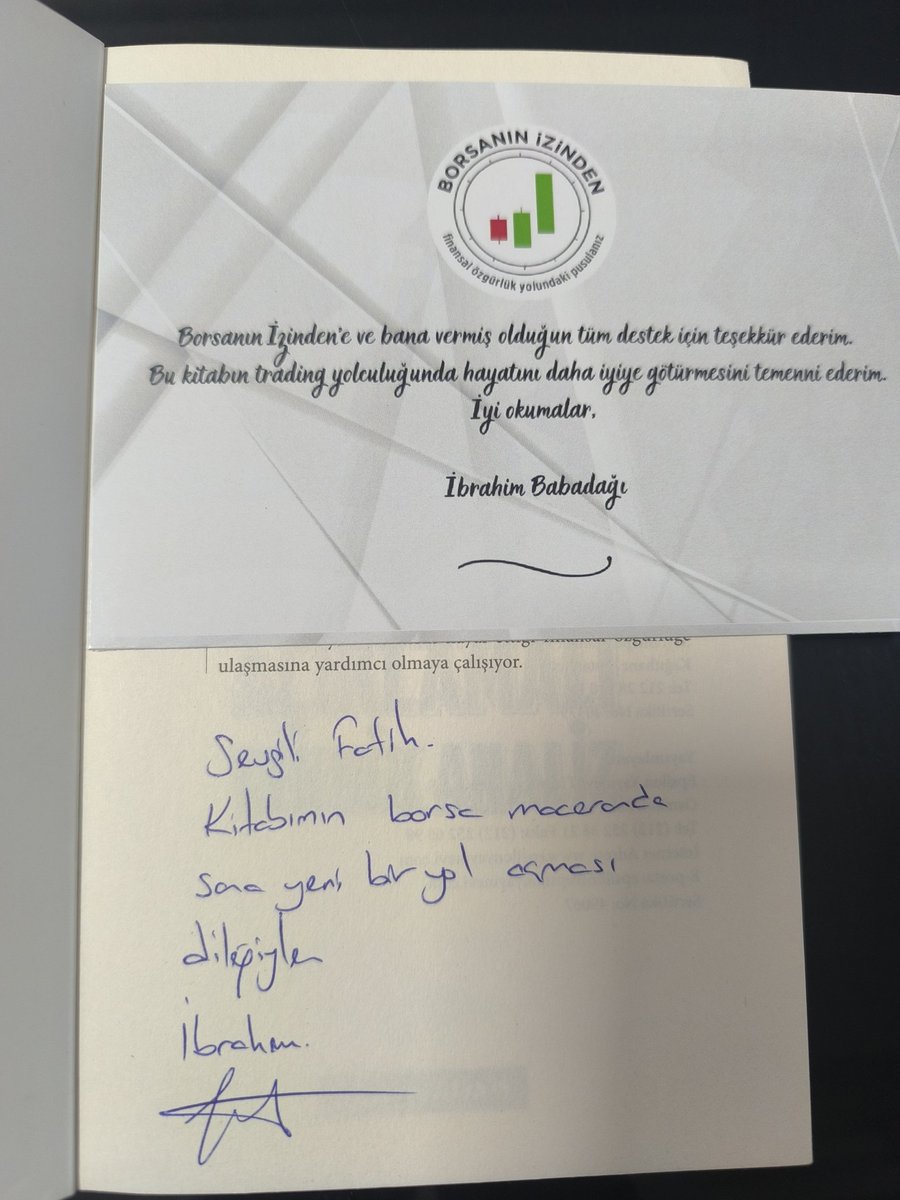 BORSANIN İZİNDEN
finansal özgürlük yolundaki pusulanız
Borsanın İzinden'e ve bana vermiş olduğun tüm destek için teşekkür ederim.
Bu kitabın trading yolculuğunda hayatını daha iyiye götürmesini temenni ederim.
İyi okumalar,
İbrahim Babadağı
ulaşmasına yardımcı olmaya çalışıyor.
Sevgili Fatih.
Kitabımın borsa maceranda
sana yeni bir yol açması
dileğiyle
İbrahim.